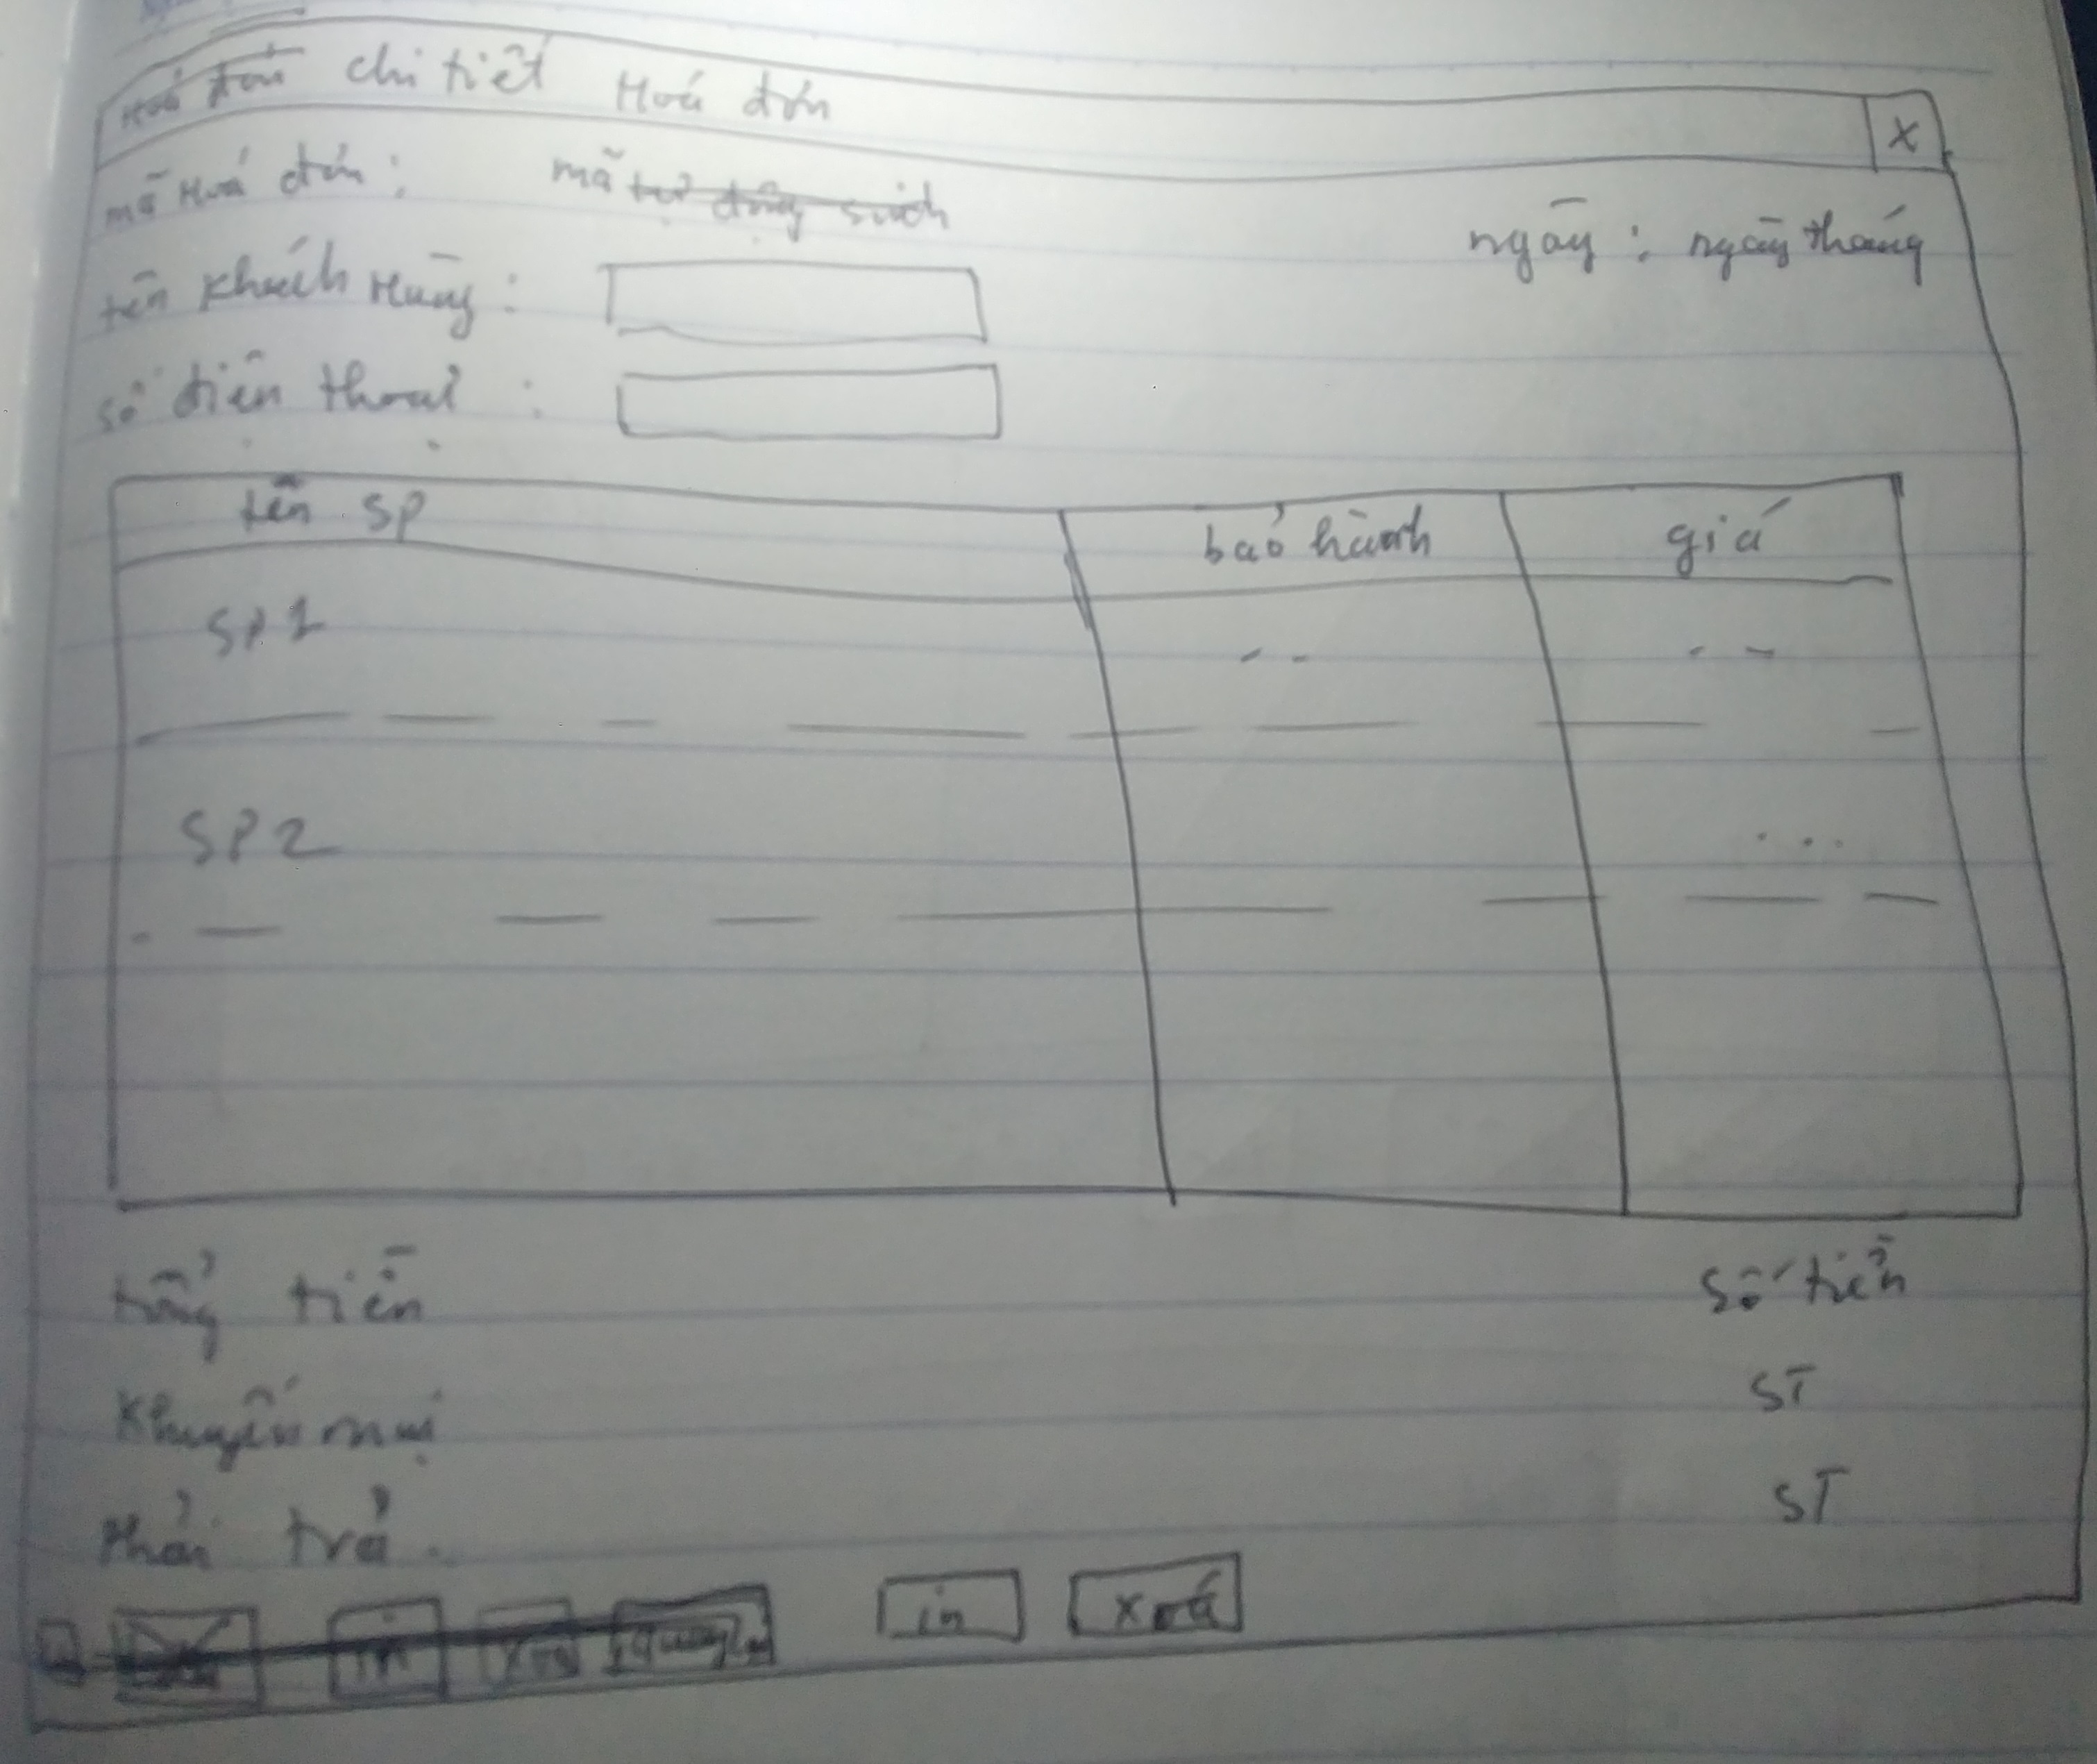 Hoá đơn chi tiết Hoá đơn
X
mã Hoá đơn : mã tự động sinh
ngày : ngày tháng
tên Khách Hàng :
số điện thoại :
tên SP bảo hành giá
SP1 - - - -
SP2 ...
tổng tiền số tiền
Khuyến mại ST
Phải trả. ST
in in xoá